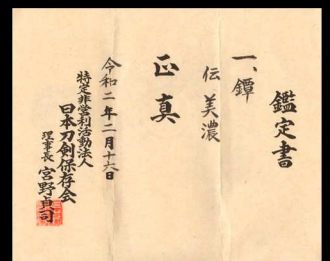 鑑定書
一、鐔
伝 美濃
正真
令和二年二月十六日
特定非営利活動法人
日本刀剣保存会
理事長 宮野貞司